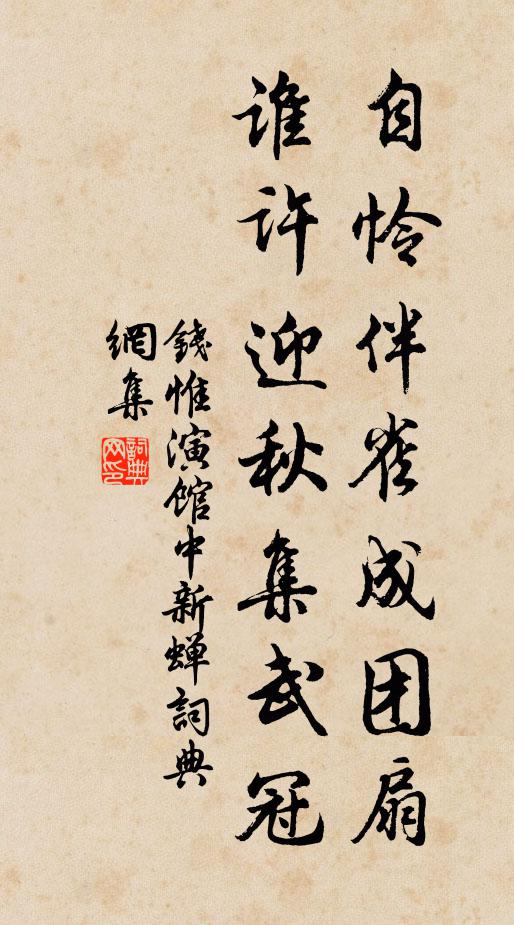 自怜伴雀成团扇
谁许迎秋集武冠
錢惟演馆中新蝉詞典
網集
詞典
网印